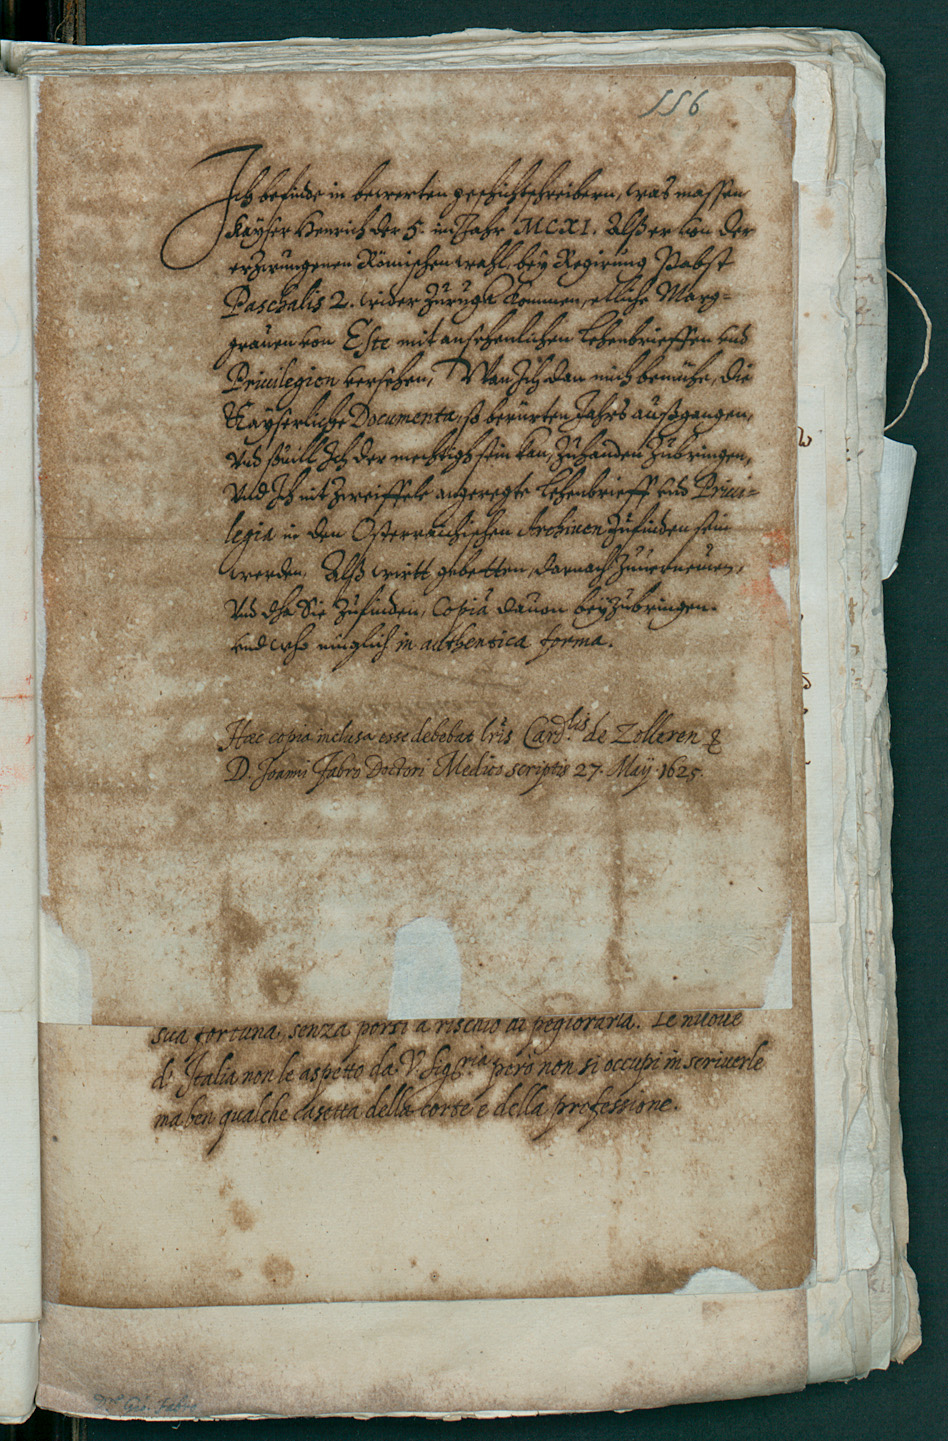 556
Ich befinde in bewerten geschichtschreibern, was massen
Kayser Henrich der 5. im Jahr MCXI. Alß er von der
erzwungenen Römischen wahl, bey Regirung Pabst
Paschalis 2. wider Zurugk kommen, etliche Marg-
grauen von Este mit ansehenlichen Lehenbrieffen vnd
Priuilegien versehen, Wan Ich dan mich bemühe, die
Kayserliche Documenta, so berürten Jahrs außgangen,
vnd souill Ich der mechtig sein kan, Zuhanden Zubringen,
vnd Ich nit Zweiffele angeregte Lehenbrieff vnd Priui-
legia in den Osterreichischen Archiuen Zufinden sein
werden. Alß wirtt gebetten, darnach
vnd Sie Zufinden, Copia dauon beyZubringen.
vnd in authentica forma.
Hæc copia inclusa esse debebat lris Card.lis de Zolleren
D. Joanni Fabro Doctori Medico scriptis 27. Maÿ. 1625.
sua fortuna, senza porsi a rischio di pegiorarla. Le nuoue
d'Italia non le aspetto da V. Sig.ria però non si occupi in scriuerle
ma ben qualche casetta della corte e della professione.